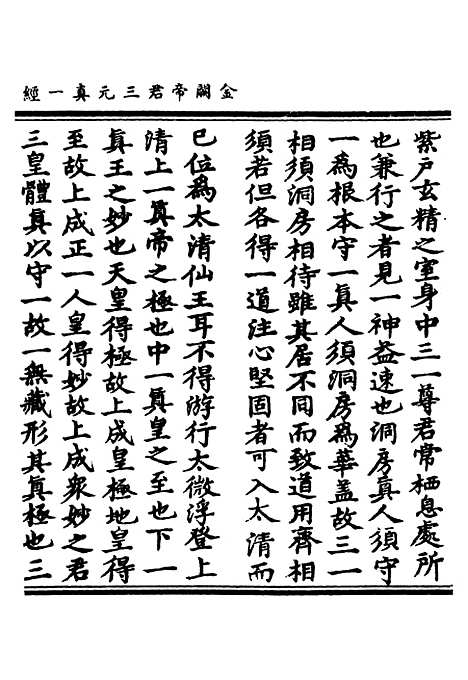 金闕帝君三元真一經
紫戶玄精之室身中三一尊君常栖息處所
也兼行之者見一神益速也洞房真人須守
一為根本守一真人須洞房為華盖故三一
相須洞房相待雖其居不同而致道用齊相
須若但各得一道注心堅固者可入太清而
巳位為太清仙王耳不得游行太微浮登上
清上一真帝之極也中一真皇之至也下一
真王之妙也天皇得極故上成皇極地皇得
至故上成正一人皇得妙故上成衆妙之君
三皇體真以守一故一無藏形其真極也三